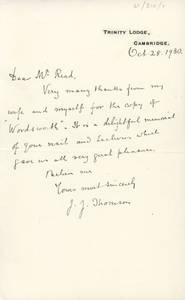 TRINITY LODGE,
CAMBRIDGE.
Oct. 28. 1930.
Dear Mr Read,
Very many thanks from my
wife and myself for the copy of
"Wordsworth". It is a delightful memorial
of your visit and Lectures which
gave us all very great pleasure.
Believe me
Yours most sincerely
J. J. Thomson